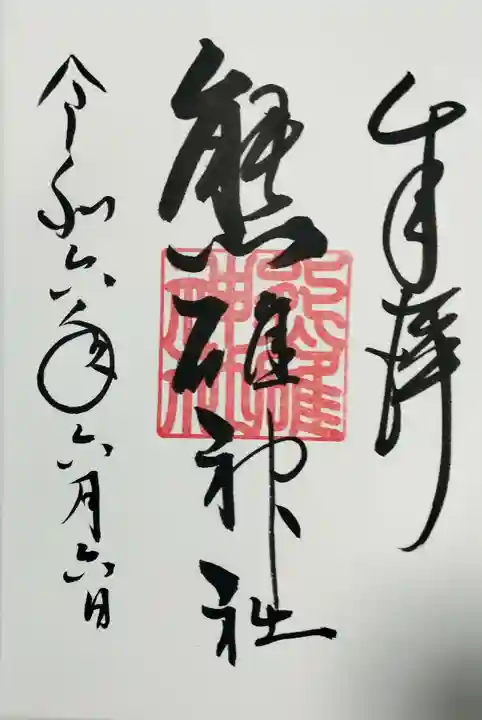 奉拝
熊碓神社
熊碓
神社
令和六年六月六日